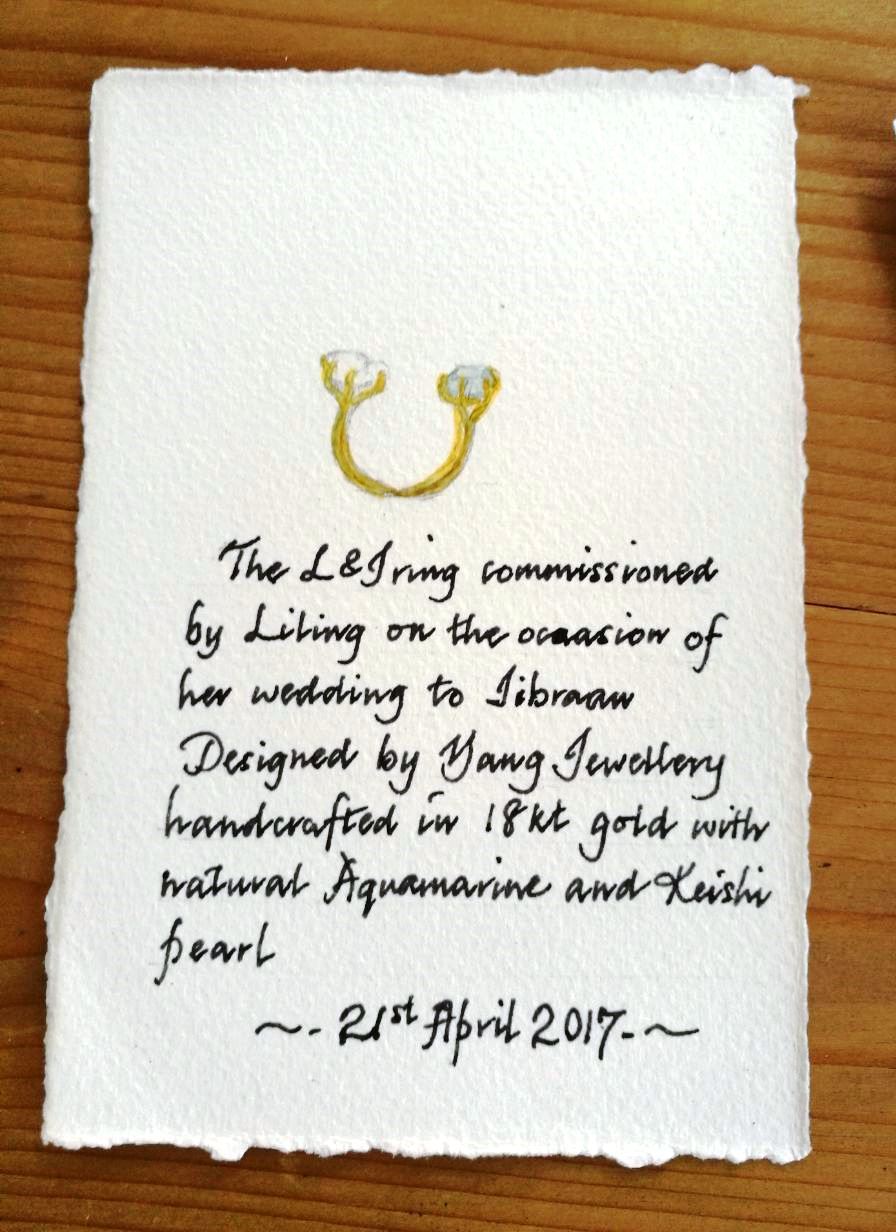 The L&J ring commissioned
by Liling on the ocaasion of
her wedding to Jibraan
Designed by Yang Jewellery
handcrafted in 18kt gold with
natural Aquamarine and Keishi
pearl
~.- 21st April 2017-.~